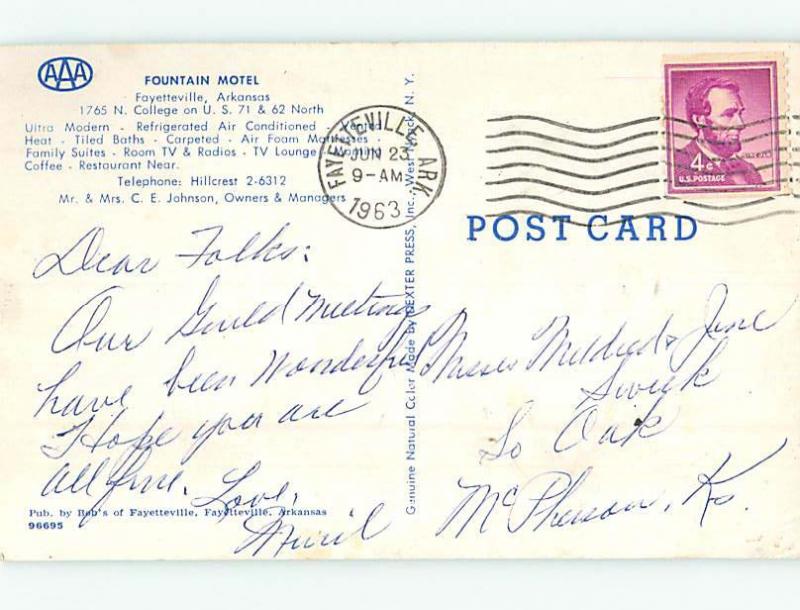 AAA
FOUNTAIN MOTEL
Fayetteville, Arkansas
1765 N. College on U. S. 71 & 62 North
Ultra Modern - Refrigerated Air Conditioned - Vented
Heat - Tiled Baths - Carpeted - Air Foam Mattresses -
Family Suites - Room TV & Radios - TV Lounge - Morning
Coffee - Restaurant Near.
Telephone: Hillcrest 2-6312
Mr. & Mrs. C. E. Johnson, Owners & Managers
Dear Folks:
Our Guild Meetings
have been Wonderful
I Hope you are
all fine.
Love,
Pub. by Bob's of Fayetteville, Fayetteville, Arkansas
96695
Genuine Natural Color Made by DEXTER PRESS, Inc., West Nyack, N. Y.
FAYETTEVILLE ARK.
JUN 23
9-AM
1963
4¢
U.S. POSTAGE
POST CARD
Misses Mildred & June
So Oak
McPherson, Ks.